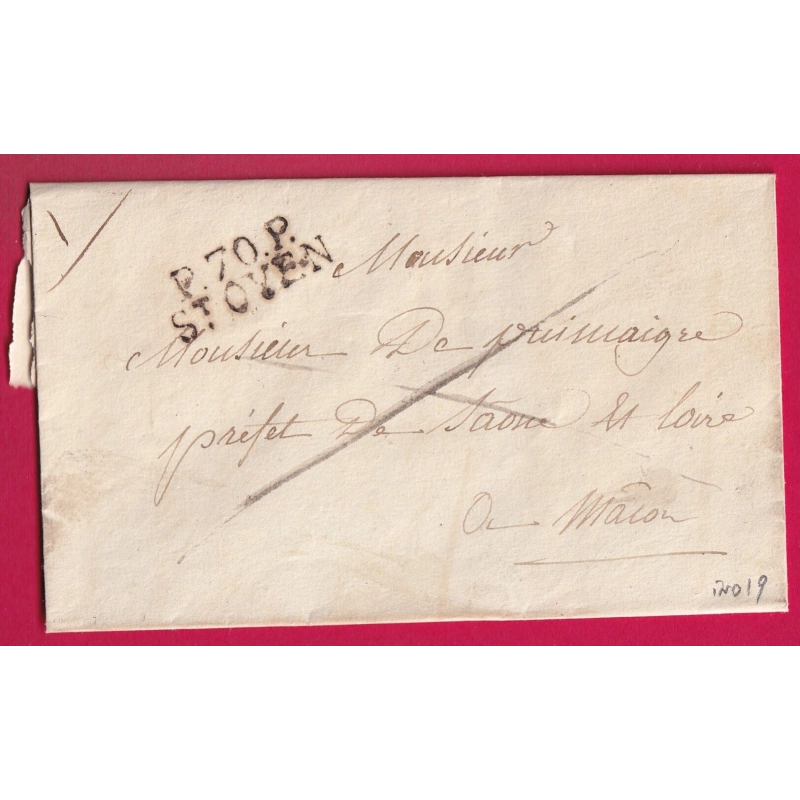 P.70.P.
ST OVEN
Monsieur
Monsieur De puimaigre
préfet De Saone Et loire
a Mâcon